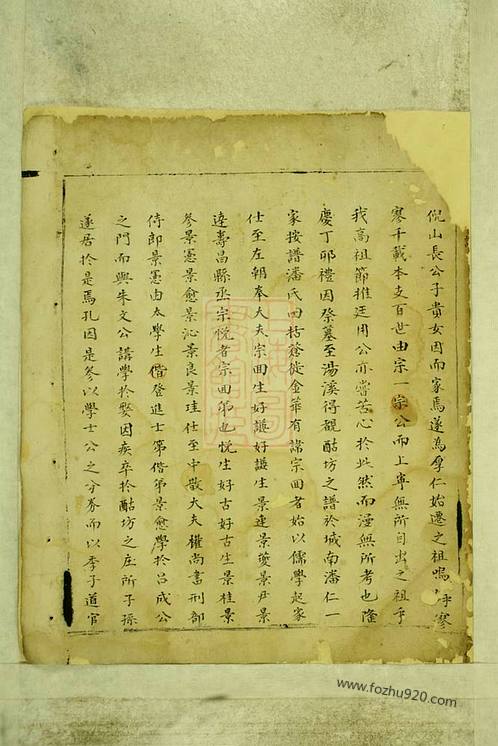 倪山長公子貴女因而家焉遂為厚仁始遷之祖嗚呼寥
寥千載本支百世由宗一宗公而上寧無所自出之祖乎
我高祖節推廷用公亦嘗苦心於此然而漫無所考也隆
慶丁卯禮因祭墓至湯溪得觀酤坊之譜於城南潘仁一
家按譜潘氏由括蒼徙金華有諱宗回者始以儒學起家
仕至左朝奉大夫宗回生好謙好謙生景連景夔景尹景
達壽昌縣丞宗悅者宗回弟也悅生好古好古生景桂景
參景憲景愈景沁景良景珪仕至中散大夫權尚書刑部
侍郎景憲由太學生偕登進士第偕弟景愈學於呂成公
之門而與朱文公講學於婺因疾卒於酤坊之庄所子孫
遂居於是焉孔因是參以學士公之分券而以季子道官
www.fozhu920.com